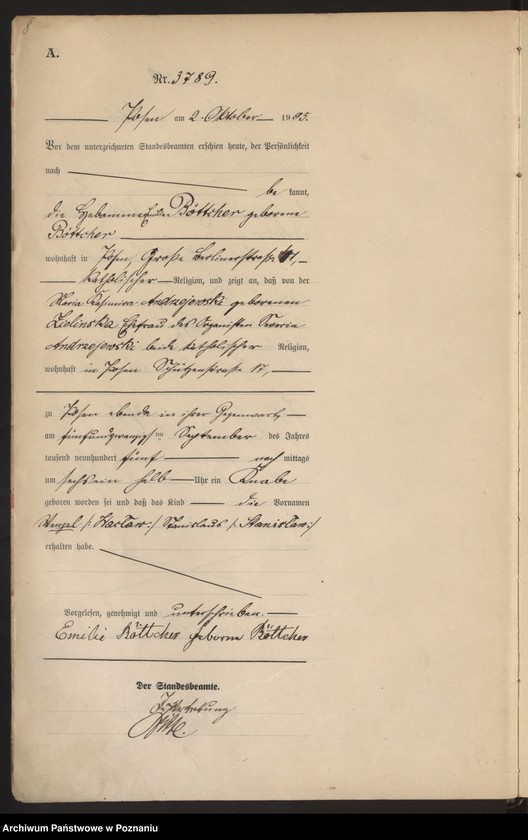 8
A.
Nr. 3789.
Posen am 2. Oktober 1905.
Vor dem unterzeichneten Standesbeamten erschien heute, der Persönlichkeit
nach
be kannt,
die Hebamme Emilie Böttcher geborene
Böttcher
wohnhaft in Posen, Große Berlinerstraße
katholischer Religion, und zeigt an, daß von der
Maria Kasimira Andrzejewski geborenen
Zielinska Ehefrau des Organisten
Andrzejewski beide katholischer Religion,
wohnhaft in Posen Schützenstraße 17,
zu Posen ebenda in ihrer Gegenwart,
am fünfundzwanzigsten September des Jahres
tausend neunhundert fünf nach mittags
um sechs ein halb Uhr ein Knabe
geboren worden sei und daß das Kind die Vornamen
Wenzel /: Wacław :/ Stanislaus /: Stanisław :/
erhalten habe.
Vorgelesen, genehmigt und unterschrieben.
Emilie Böttcher geborne Böttcher
Der Standesbeamte.
In Vertretung
Archiwum Państwowe w Poznaniu